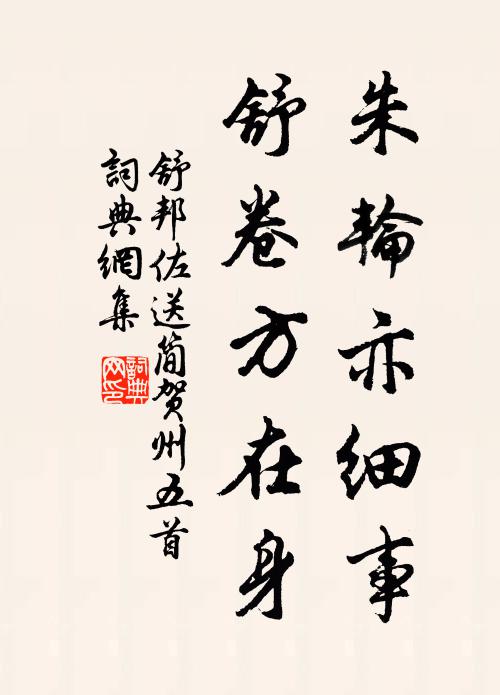 朱輪亦細事
舒卷方在身
舒邦佐送简贺州五首
詞典網集
詞典网印